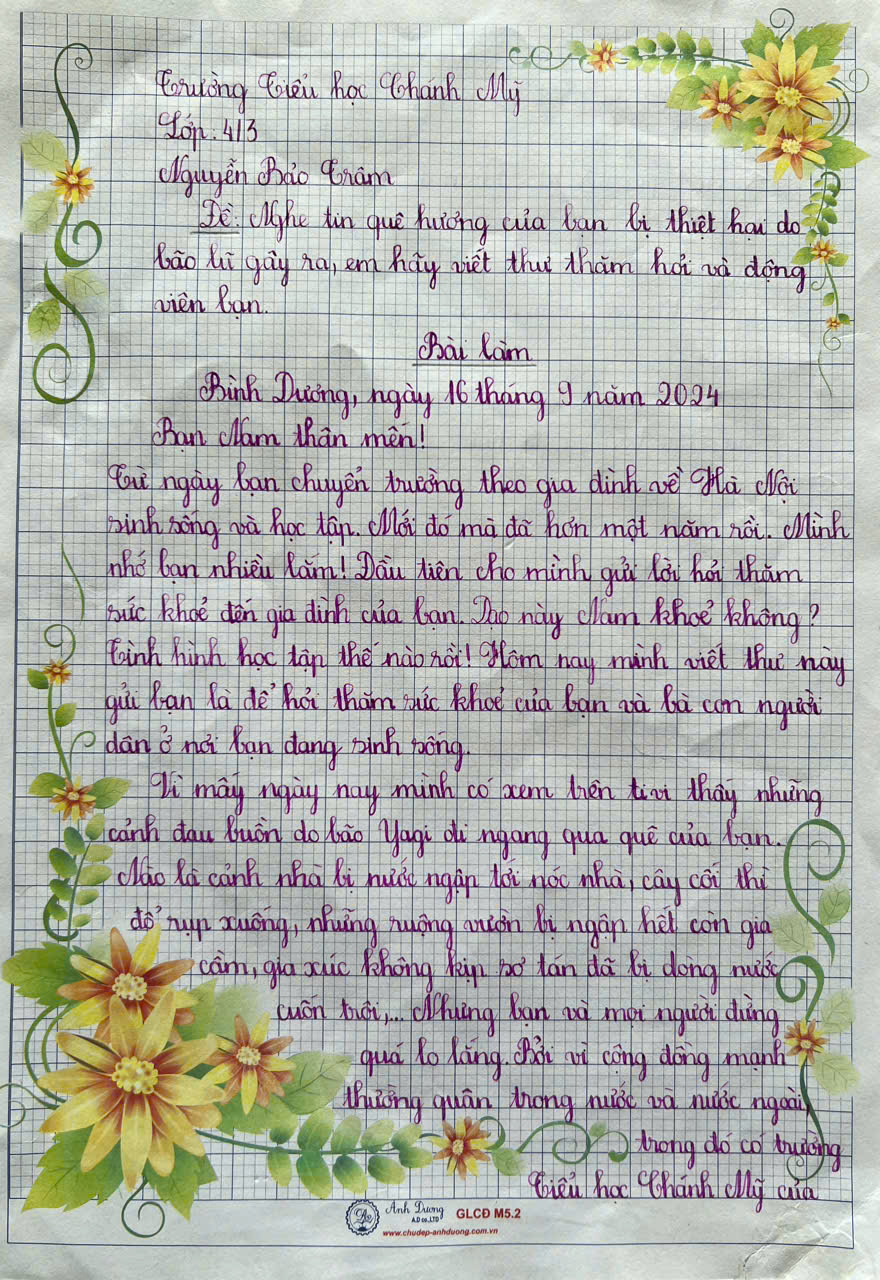 Trường Tiểu học Chánh Mỹ
Lớp: 4/3
Nguyễn Bảo Trâm
Đề: Nghe tin quê hương của bạn bị thiệt hại do
bão lũ gây ra, em hãy viết thư thăm hỏi và động
viên bạn.
Bài làm
Bình Dương, ngày 16 tháng 9 năm 2024
Bạn Nam thân mến!
Từ ngày bạn chuyển trường theo gia đình về Hà Nội
sinh sống và học tập. Mới đó mà đã hơn một năm rồi. Mình
nhớ bạn nhiều lắm! Đầu tiên cho mình gửi lời hỏi thăm
sức khoẻ đến gia đình của bạn. Dạo này Nam khoẻ không?
Tình hình học tập thế nào rồi! Hôm nay mình viết thư này
gửi bạn là để hỏi thăm sức khoẻ của bạn và bà con người
dân ở nơi bạn đang sinh sống.
Vì mấy ngày nay mình có xem trên tivi thấy những
cảnh đau buồn do bão Yagi đi ngang qua quê của bạn.
Nào là cảnh nhà bị nước ngập tới nóc nhà, cây cối thì
đổ rụp xuống, những ruộng vườn bị ngập hết còn gia
cầm, gia xúc không kịp sơ tán đã bị dòng nước
cuốn trôi,... Nhưng bạn và mọi người đừng
quá lo lắng. Bởi vì cộng đồng mạnh
thường quân trong nước và nước ngoài,
trong đó có trường
Tiểu học Chánh Mỹ của
Ánh Dương
A.D co.,LTD
GLCĐ M5.2
www.chudep-anhduong.com.vn